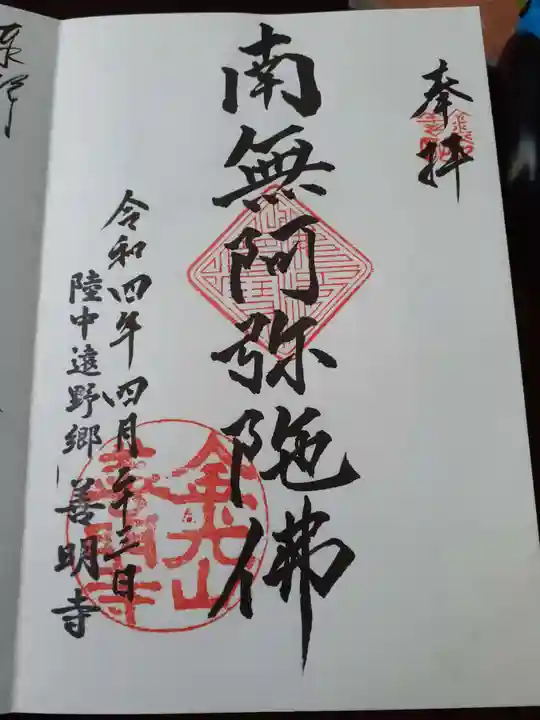 奉拝
南無阿弥陀佛
令和四年四月二十三日
陸中遠野郷 善明寺
金光山
善明寺